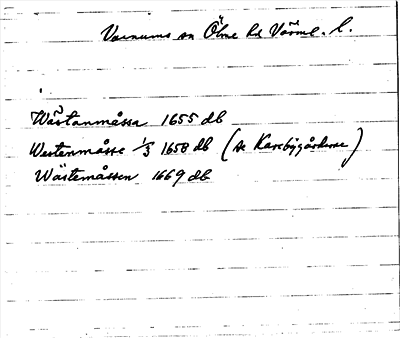 Varnums sn Ölme hd Värml. l.
Wästanmåssa 1655 db
Westenmåsse 1/3 1658 db (se Karebygårdarne)
Wästemåssen 1669 db